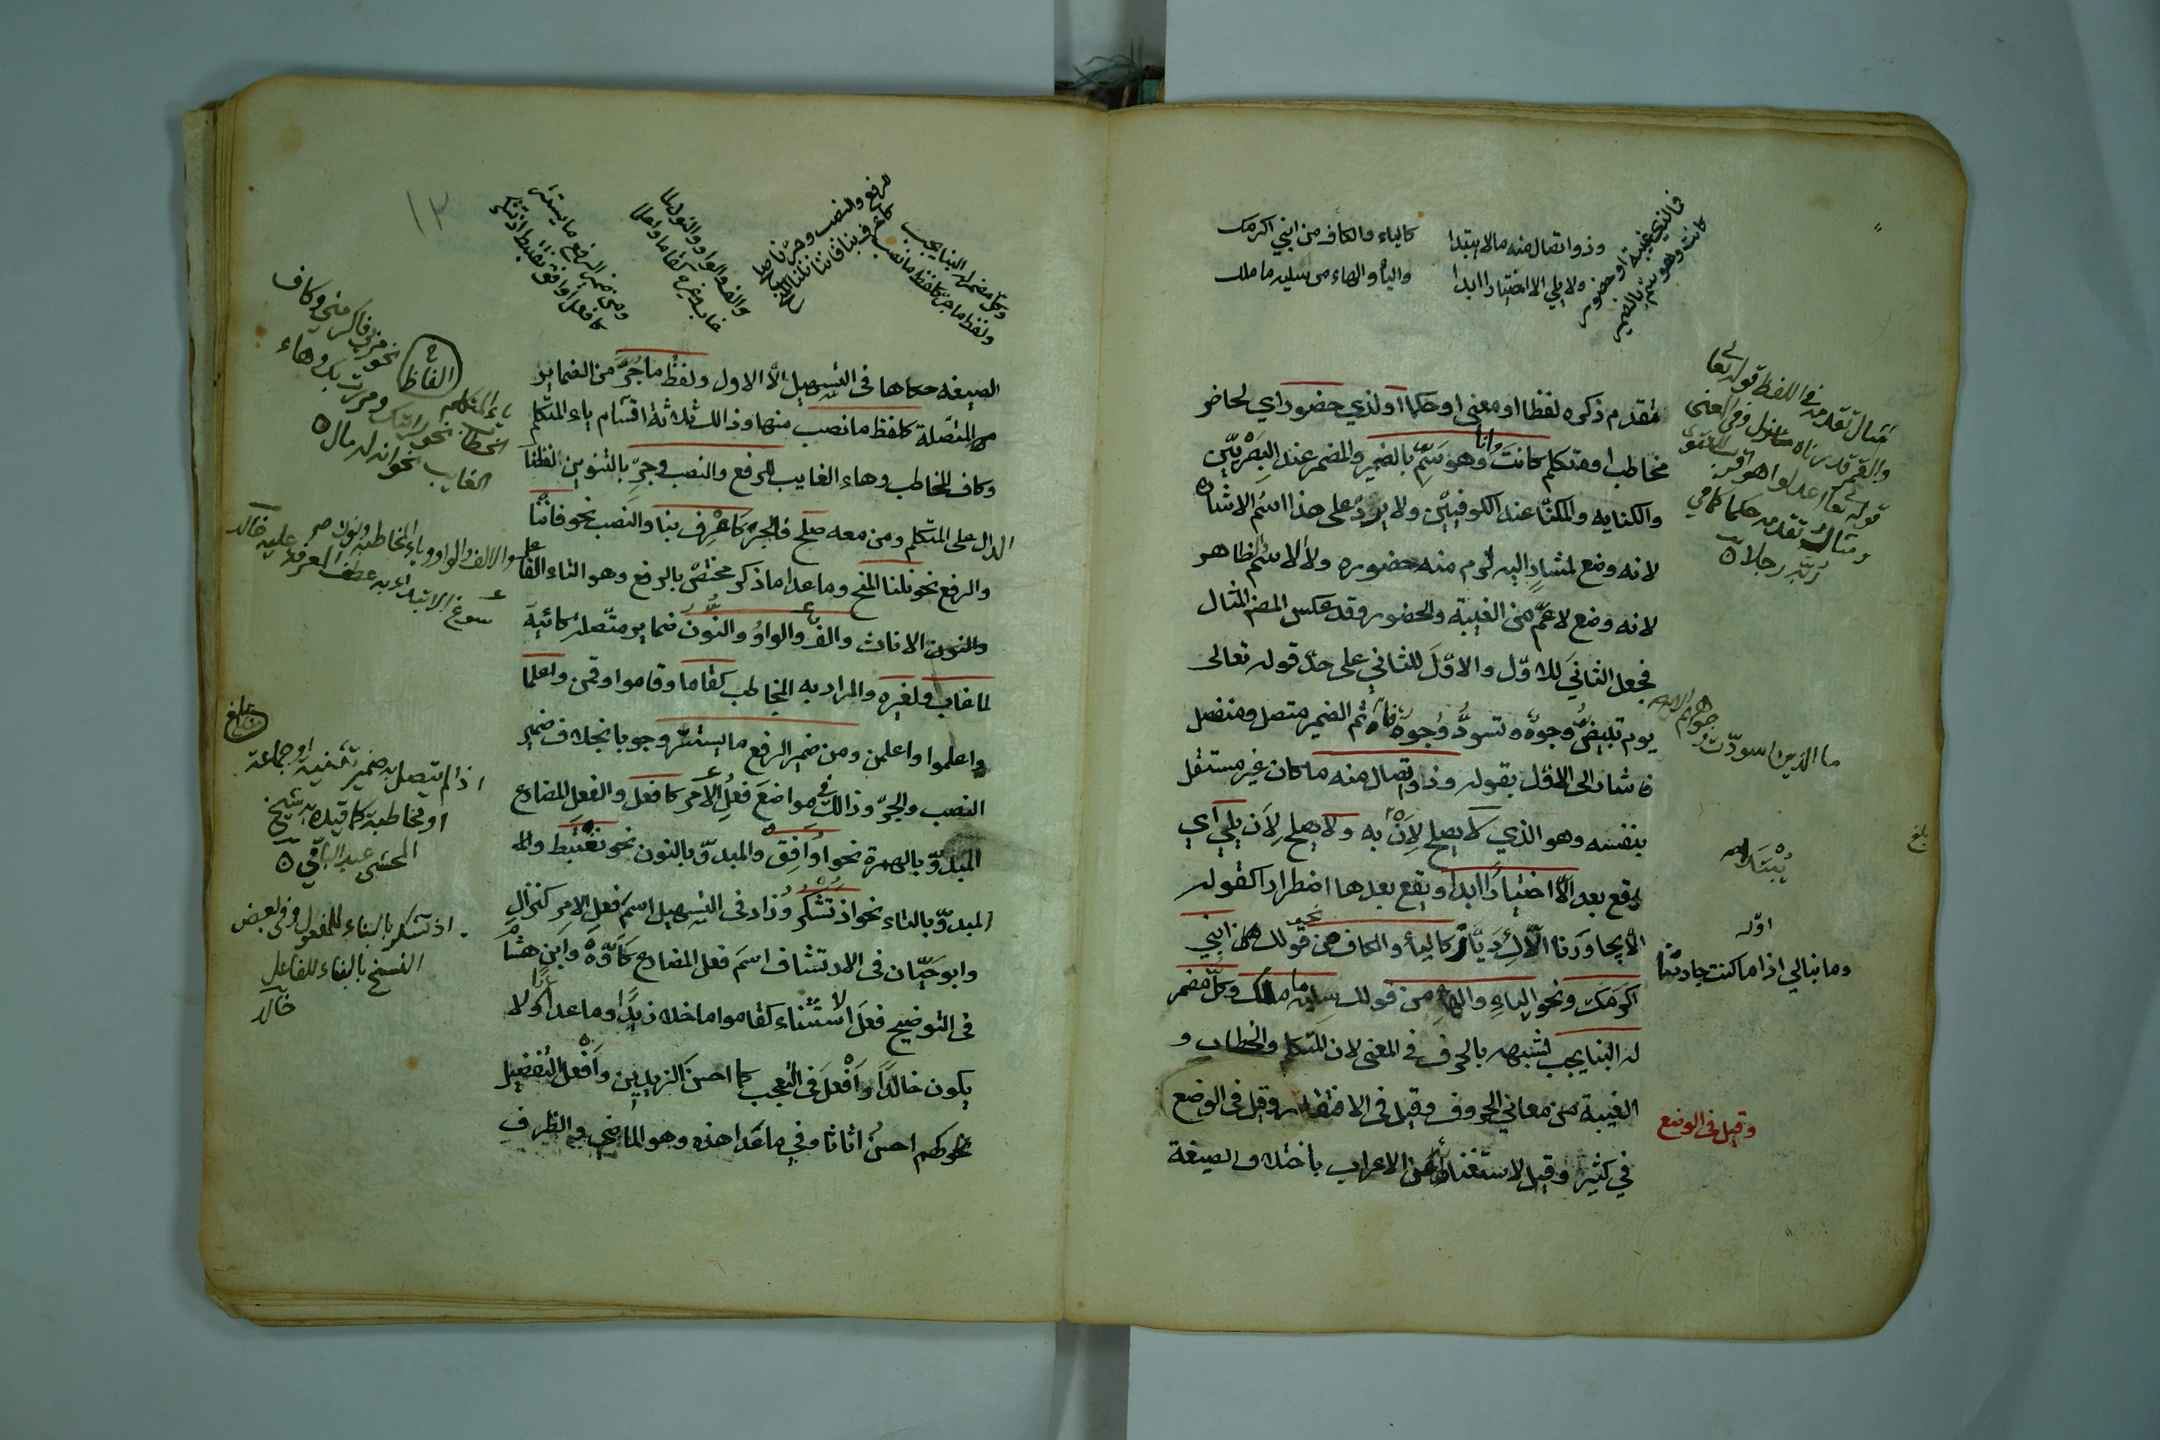 فما لذي غيبة او حضور
كانت وهو سم بالضمير
وذو اتصال منه ما لا يبتدا
ولا يلي الا اختيارا ابدا
كالياء والكاف من ابني اكرمك
والياء والهاء من سليه ما ملك
مثال تقدمه في اللفظ قوله تعالى
والقمر قدرناه منازل وفي المعنى
قوله تعالى اعدلوا هو اقرب للتقوى
ومثال تقدمه حكما كما في
ربه رجلا
متقدم ذكره لفظا او معنى او حكما او لذي حضور اي لحاضر
مخاطب او متكلم كانت وانا وهو سم بالضمير والمضمر عند البصريين
والكنايه والمكنا عند الكوفيين ولا يرد على هذا اسم الاشارة
لانه وضع لمشار اليه لزم منه حضوره ولا الاسم الظاهر
لانه وضع لاعم من الغيبة والحضور وقد عكس المصنف المثال
فجعل الثاني للاول والاول للثاني على حد قوله تعالى
يوم تبيض وجوه وتسود وجوه فاما ثم الضمير متصل ومنفصل
فاشار الى الاول بقوله وذو اتصال منه ما كان غير مستقل
بنفسه وهو الذي لا يصلح لان يبتدا به ولا يصلح لان يلي اي
يقع بعد الا اختيارا ابدا ويقع بعدها اضطرارا كقوله
الا يجاورنا الاك ديار كالياء والكاف من نحو قولك ابني
اكرمك ونحو الياء والهاء من قولك سليه ما ملك وكل مضمر
له البنا يجب لشبهه بالحرف في المعنى لان التكلم والخطاب و
الغيبة من معاني الحروف وقيل في الافتقار وقيل في الوضع
في كثير وقيل لاستغنائه عن الاعراب باختلاف الصيغة
ما الذين اسودت وجوههم الاية
يبتدا
اوله
وما نبالي اذا ما كنت جارتنا
وقيل في الوضع
بلغ
١٢
وكل مضمر له البنا يجب
ولفظ ما جر كلفظ ما نصب
للرفع والنصب وجر نا صلح
كاعرف بنا فاننا نلنا المنح
والف والواو والنون لما
غاب وغيره كقاما واعلما
ومن ضمير الرفع ما يستتر
كافعل اوافق نغتبط اذ تشكر
الصيغه حكاها في التسهيل الا الاول ولفظ ما جر من الضماير
المتصلة كلفظ ما نصب منها وذالك ثلاثة اقسام ياء المتكلم
وكاف المخاطب وهاء الغايب للرفع والنصب وجر بالتنوين لفظنا
الدال على المتكلم ومن معه صلح فالجر كاعرف بنا والنصب نحو فاننا
والرفع نحو نلنا المنح وما عدا ما ذكر مختص بالرفع وهو التاء
والنون الاناث والف والواو والنون ضماير متصلة كائنة
لما غاب ولغيره والمراد به المخاطب كقاما وقاموا وقمن واعلما
واعلموا واعلمن ومن ضمير الرفع ما يستتر وجوبا بخلاف ضمير
النصب والجر وذالك في مواضع فعل الامر كافعل والفعل المضارع
المبدو بالهمزة نحو اوافق والمبدو بالنون نحو نغتبط وا
المبدو بالتاء نحو اذ تشكر وزاد في التسهيل اسم فعل الامر كنزال
وابو حيان في الارتشاف اسم فعل المضارع كاوه وابن هشام
في التوضيح فعل الاستثناء كقاموا ما خلا زيدا وما عدا عمرا ولا
يكون خالدا وافعل في التعجب كما احسن الزيدين وافعل التفضيل
نحو هم احسن اثاثا وفي ما عدا هذه وهو الماضي والظرف
الفاظ
ياء المتكلم
وكاف
الخطاب
ومررت بك وهاء
الغايب نحو انه له مال
والالف والواو وياء المخاطبة ونون
خالد
بلغ
اذا لم يتصل به ضمير تثنية او جماعة
او مخاطبة كما قيده به شيخ
المحشي عبد الباقي
اذ تشكر بالبناء للمفعول وفي بعض
النسخ بالبناء للفاعل
خالد